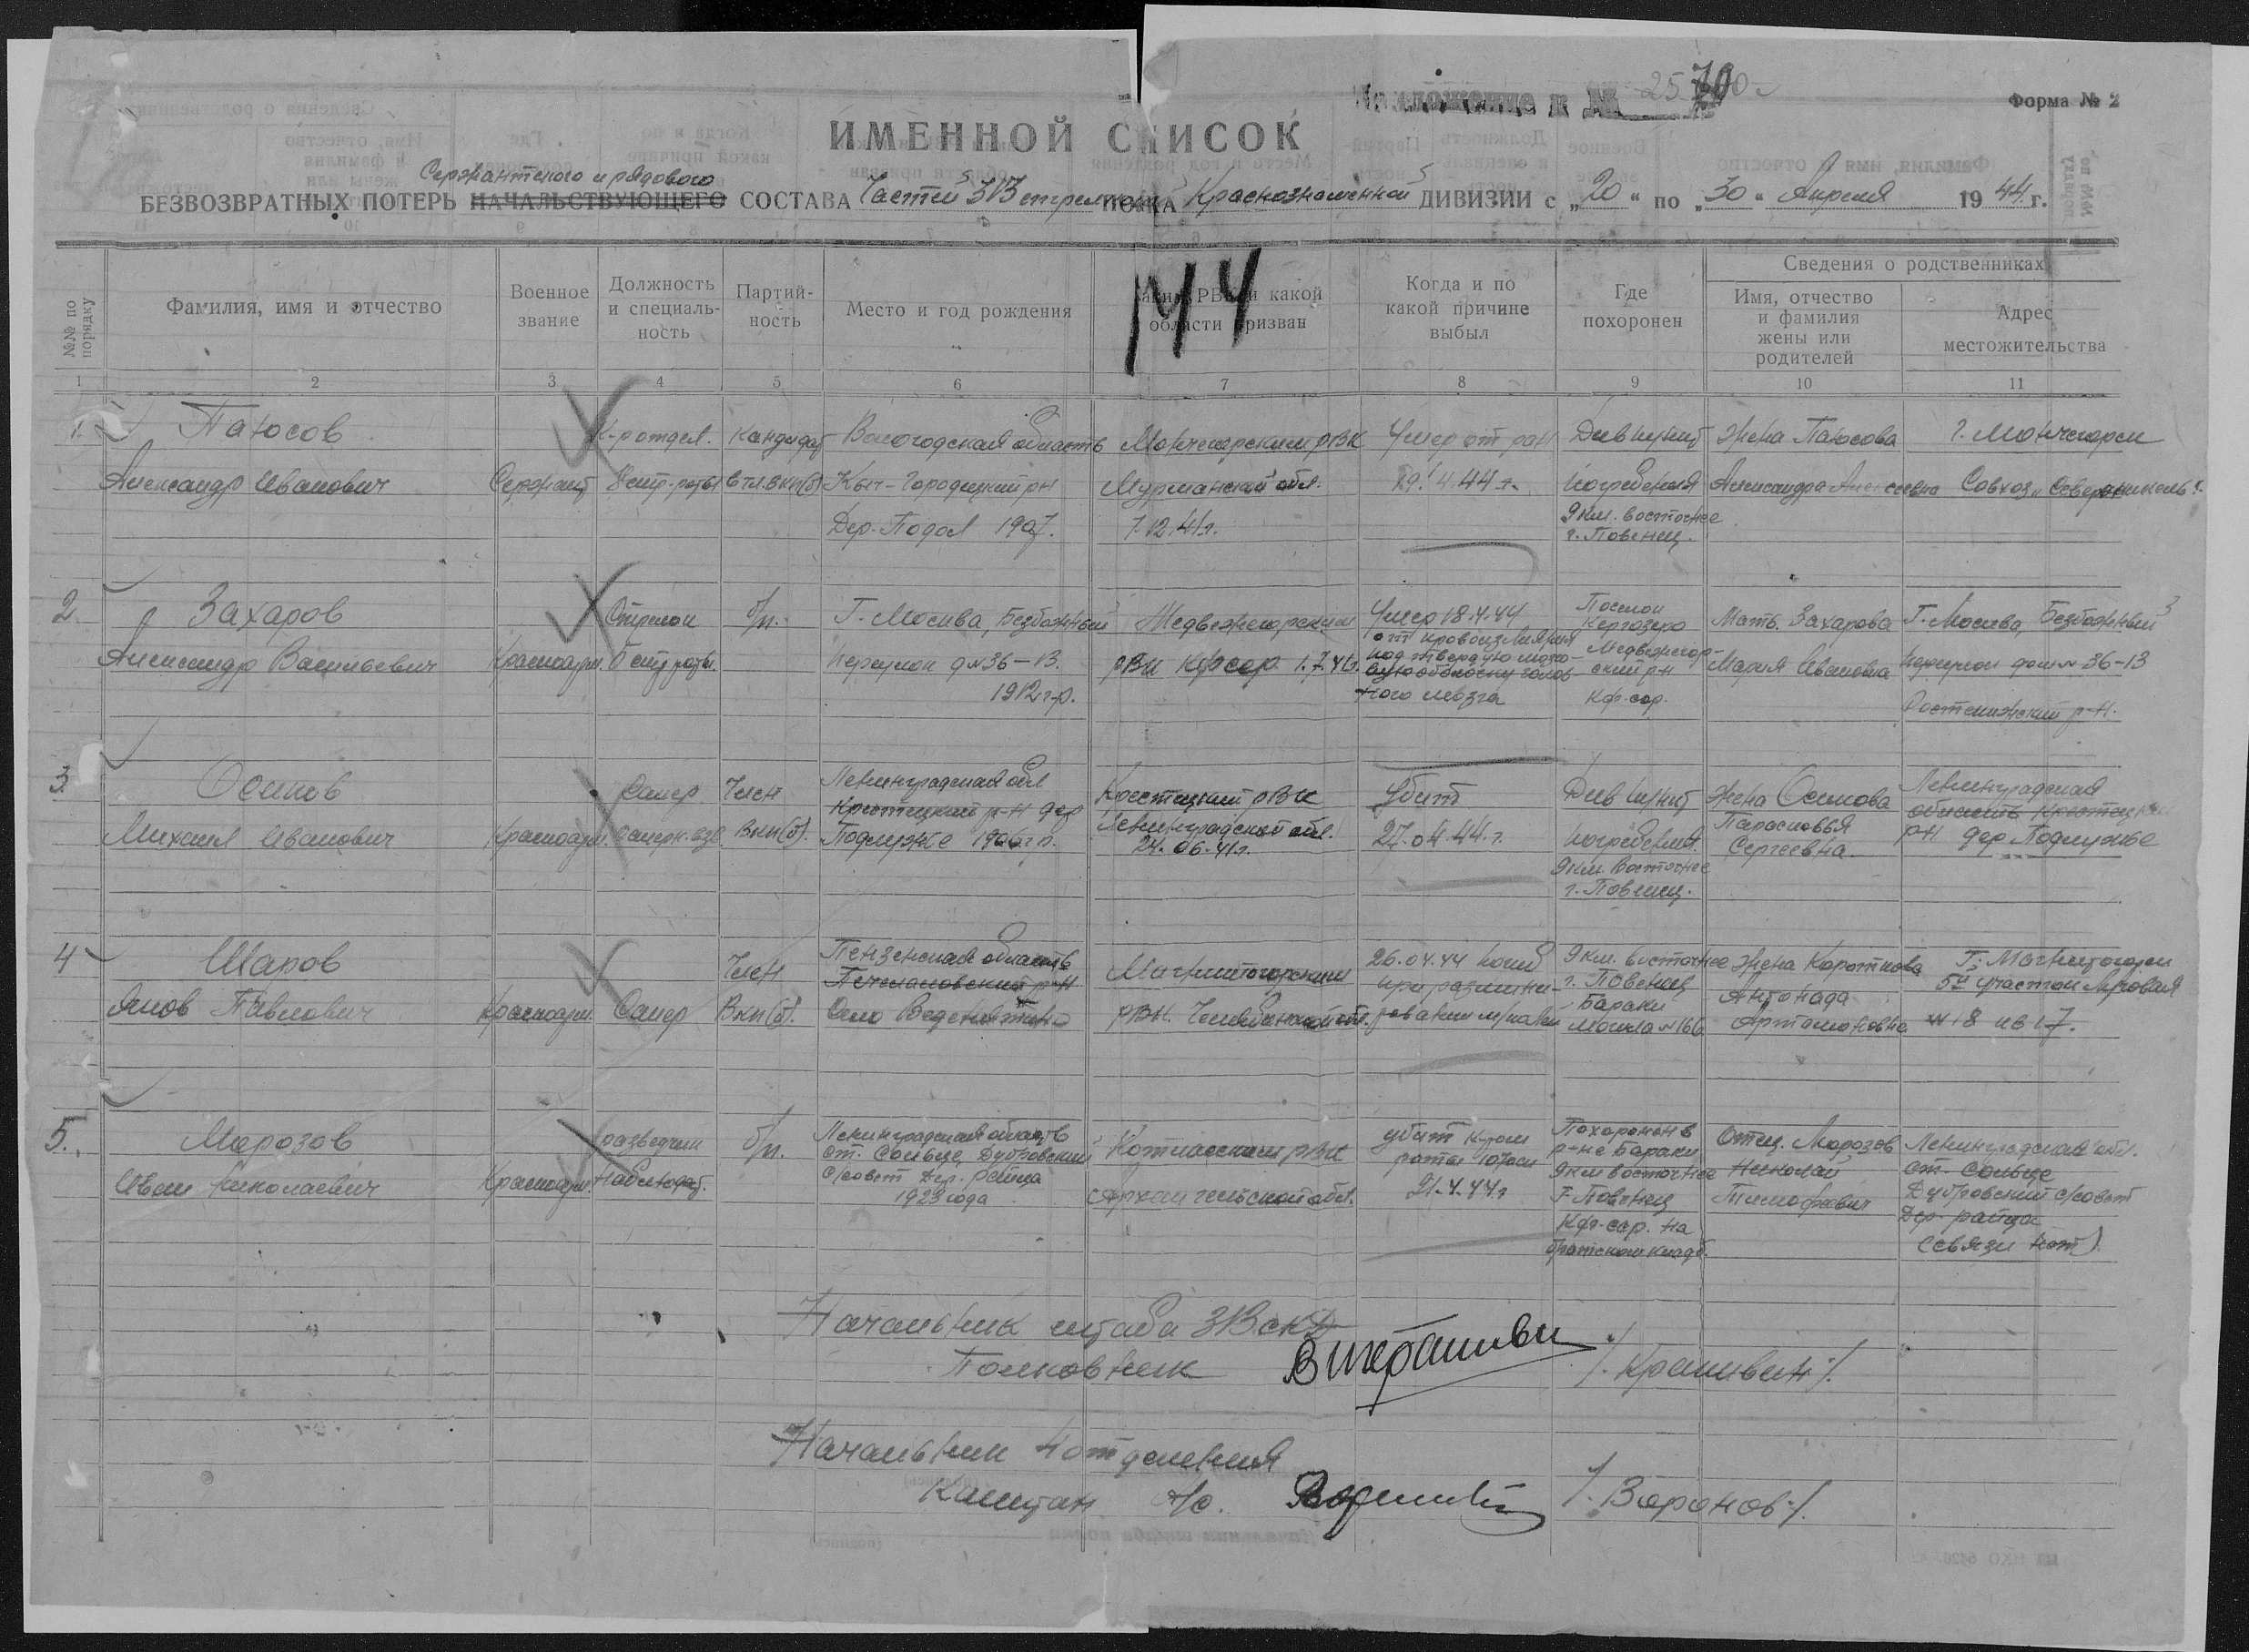 Приложение к № 25700
Форма № 2
ИМЕННОЙ СПИСОК
Сержантского и рядового
БЕЗВОЗВРАТНЫХ ПОТЕРЬ НАЧАЛЬСТВУЮЩЕГО СОСТАВА Частей 313 стрелковой ПОЛКА Краснознаменной ДИВИЗИИ с „20“ по „30“ Апреля 1944 г.
144
№№ по порядку
Фамилия, имя и отчество
Военное звание
Должность и специальность
Партийность
Место и год рождения
Каким РВК и какой области призван
Когда и по какой причине выбыл
Где похоронен
Сведения о родственниках
Имя, отчество и фамилия жены или родителей
Адрес местожительства
1 2 3 4 5 6 7 8 9 10 11
1. Паюсов К-р отдел. Кандидат Вологодская область Мончегорским РВК Умер от ран Дивпункт Жена Паюсова г. Мончегорск
Александр Иванович Сержант стр. роты в чл. ВКП(б) Кич-Городецкий рн Мурманской обл. 29.4.44 г. погребения Александра Алексеевна Совхоз „Североникель“
Дер. Подол 1907. 7.12.41г. 9 км. восточнее
г. Повенец.
2. Захаров Стрелок б/п. Г. Москва, Безбожный Медвежегорским Умер 18.4.44 Поселок Мать. Захарова Г. Москва, Безбожный
от кровоизлияния Кергозеро
Александр Васильевич Красноарм. стр. роты. переулок д № 36-13. РВК Кфсср 1.7.41г. под твердую мозго- Медвежегор- Мария Ивановна переулок дом № 36-13
вую оболочку голов- ский р-н
1912 г.р. ного мозга Кф-сср. Ростокинский р-н.
3. Осипов Сапер Член Ленинградская обл Крестецкий РВК убит Дивпункт Жена Осипова Ленинградская
Крестецкий р-н дер область Крестецкий
Михаил Иванович Красноарм. саперн. взв. ВКП(б). Подлужье 1906 г.р. Ленинградской обл. 27.04.44.г. погребения Парасковья рн дер. Подлужье
24.06.41г. 9 км. восточнее Сергеевна
г. Повенец.
4 Шаров Член Пензенская область Магнитогорским 26.04.44 погиб 9 км. восточнее Жена Короткова Г. Магнитогорск
Пачелмовский р-н при размини- г. Повенец 5й участок Луговая
Яков Павлович Красноарм. Сапер ВКП(б). Село РВК. Челябинской обл. ровании м/поля Бараки Артамоновна № 18 кв 17.
Могила № 166
5. Морозов разведчик б/п. Ленинградская область Котласским РВК убит Похоронен в Отец. Морозов Ленинградская обл.
ст. Сольцы, Дубровский роты р-не Бараки ст. Сольцы
Иван Николаевич Красноарм. Наблюдат. с/совет Дер. Райца Архангельской обл. 21.4.44г 9 км восточнее Николай Дубровский с/совет
1923 года г. Повенец Тимофеевич Дер. райца
Кф-сср. на (связи нет)
братском кладб.
Начальник штаба 313 скд
Полковник /. Крапивин /.
Начальник 4 отделения
Капитан а/с. /. Воронов /.